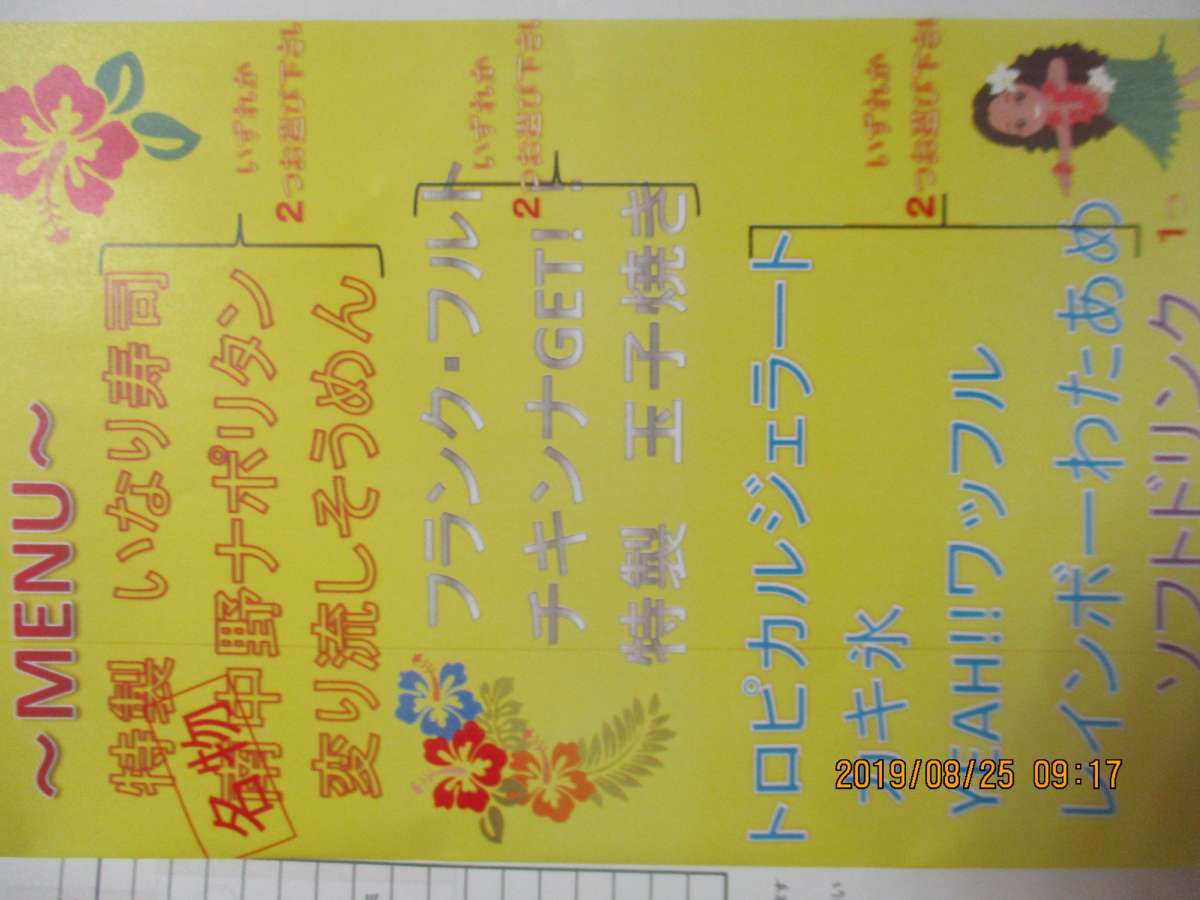 ~MENU~
特製 いなり寿司
南中野ナポリタン
名物
変り流しそうめん
いずれか
2つお選び下さい
フランク・フルト
チキンナGET!!
特製 玉子焼き
いずれか
2つお選び下さい
トロピカルジェラート
カキ氷
YEAH!!ワッフル
レインボーわたあめ
いずれか
2つお選び下さい
ソフトドリンク
1つ
2019/08/25 09:17